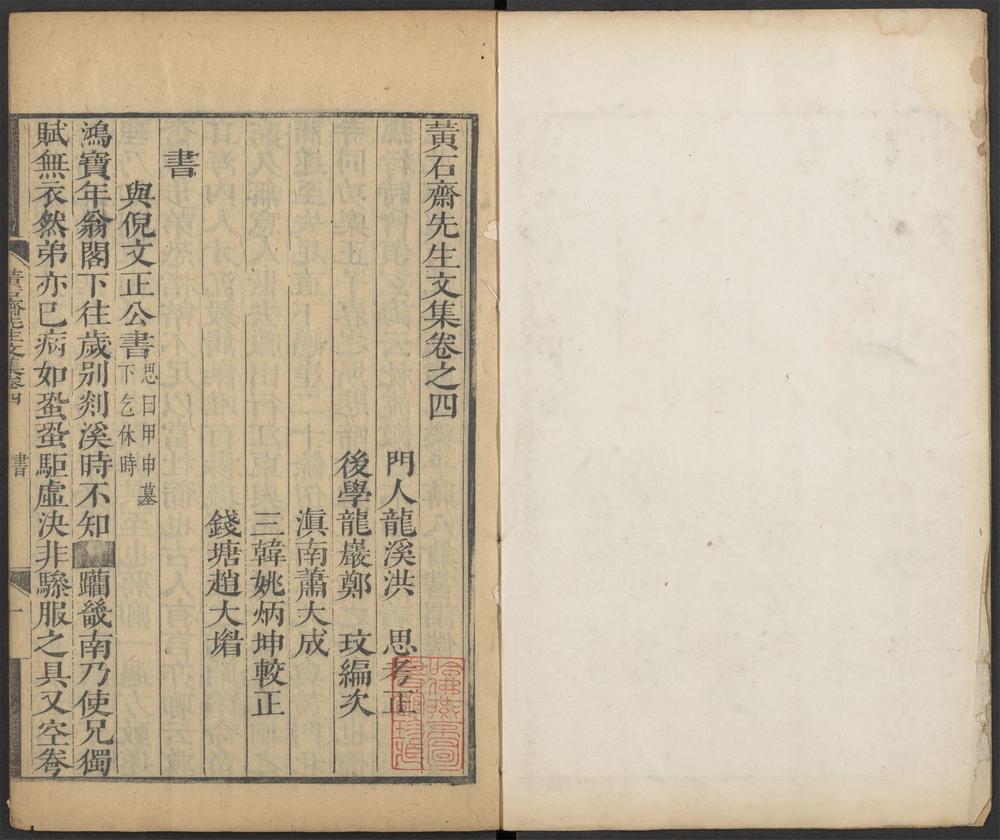 黃石齋先生文集卷之四
門人龍溪洪　思考正
後學龍巖鄭　玟編次
滇南蕭大成
三韓姚炳坤較正
錢塘趙大堦
書
與倪文正公書思曰甲申墓
下乞休時
鴻寶年翁閣下往歲别剡溪時不知
躪畿南乃使兄獨
賦無衣然弟亦已病如蛩蛩駏虛決非驂服之具又空劵
黃石齋先生文集卷四
書
一
哈佛燕京圖
書館珍藏